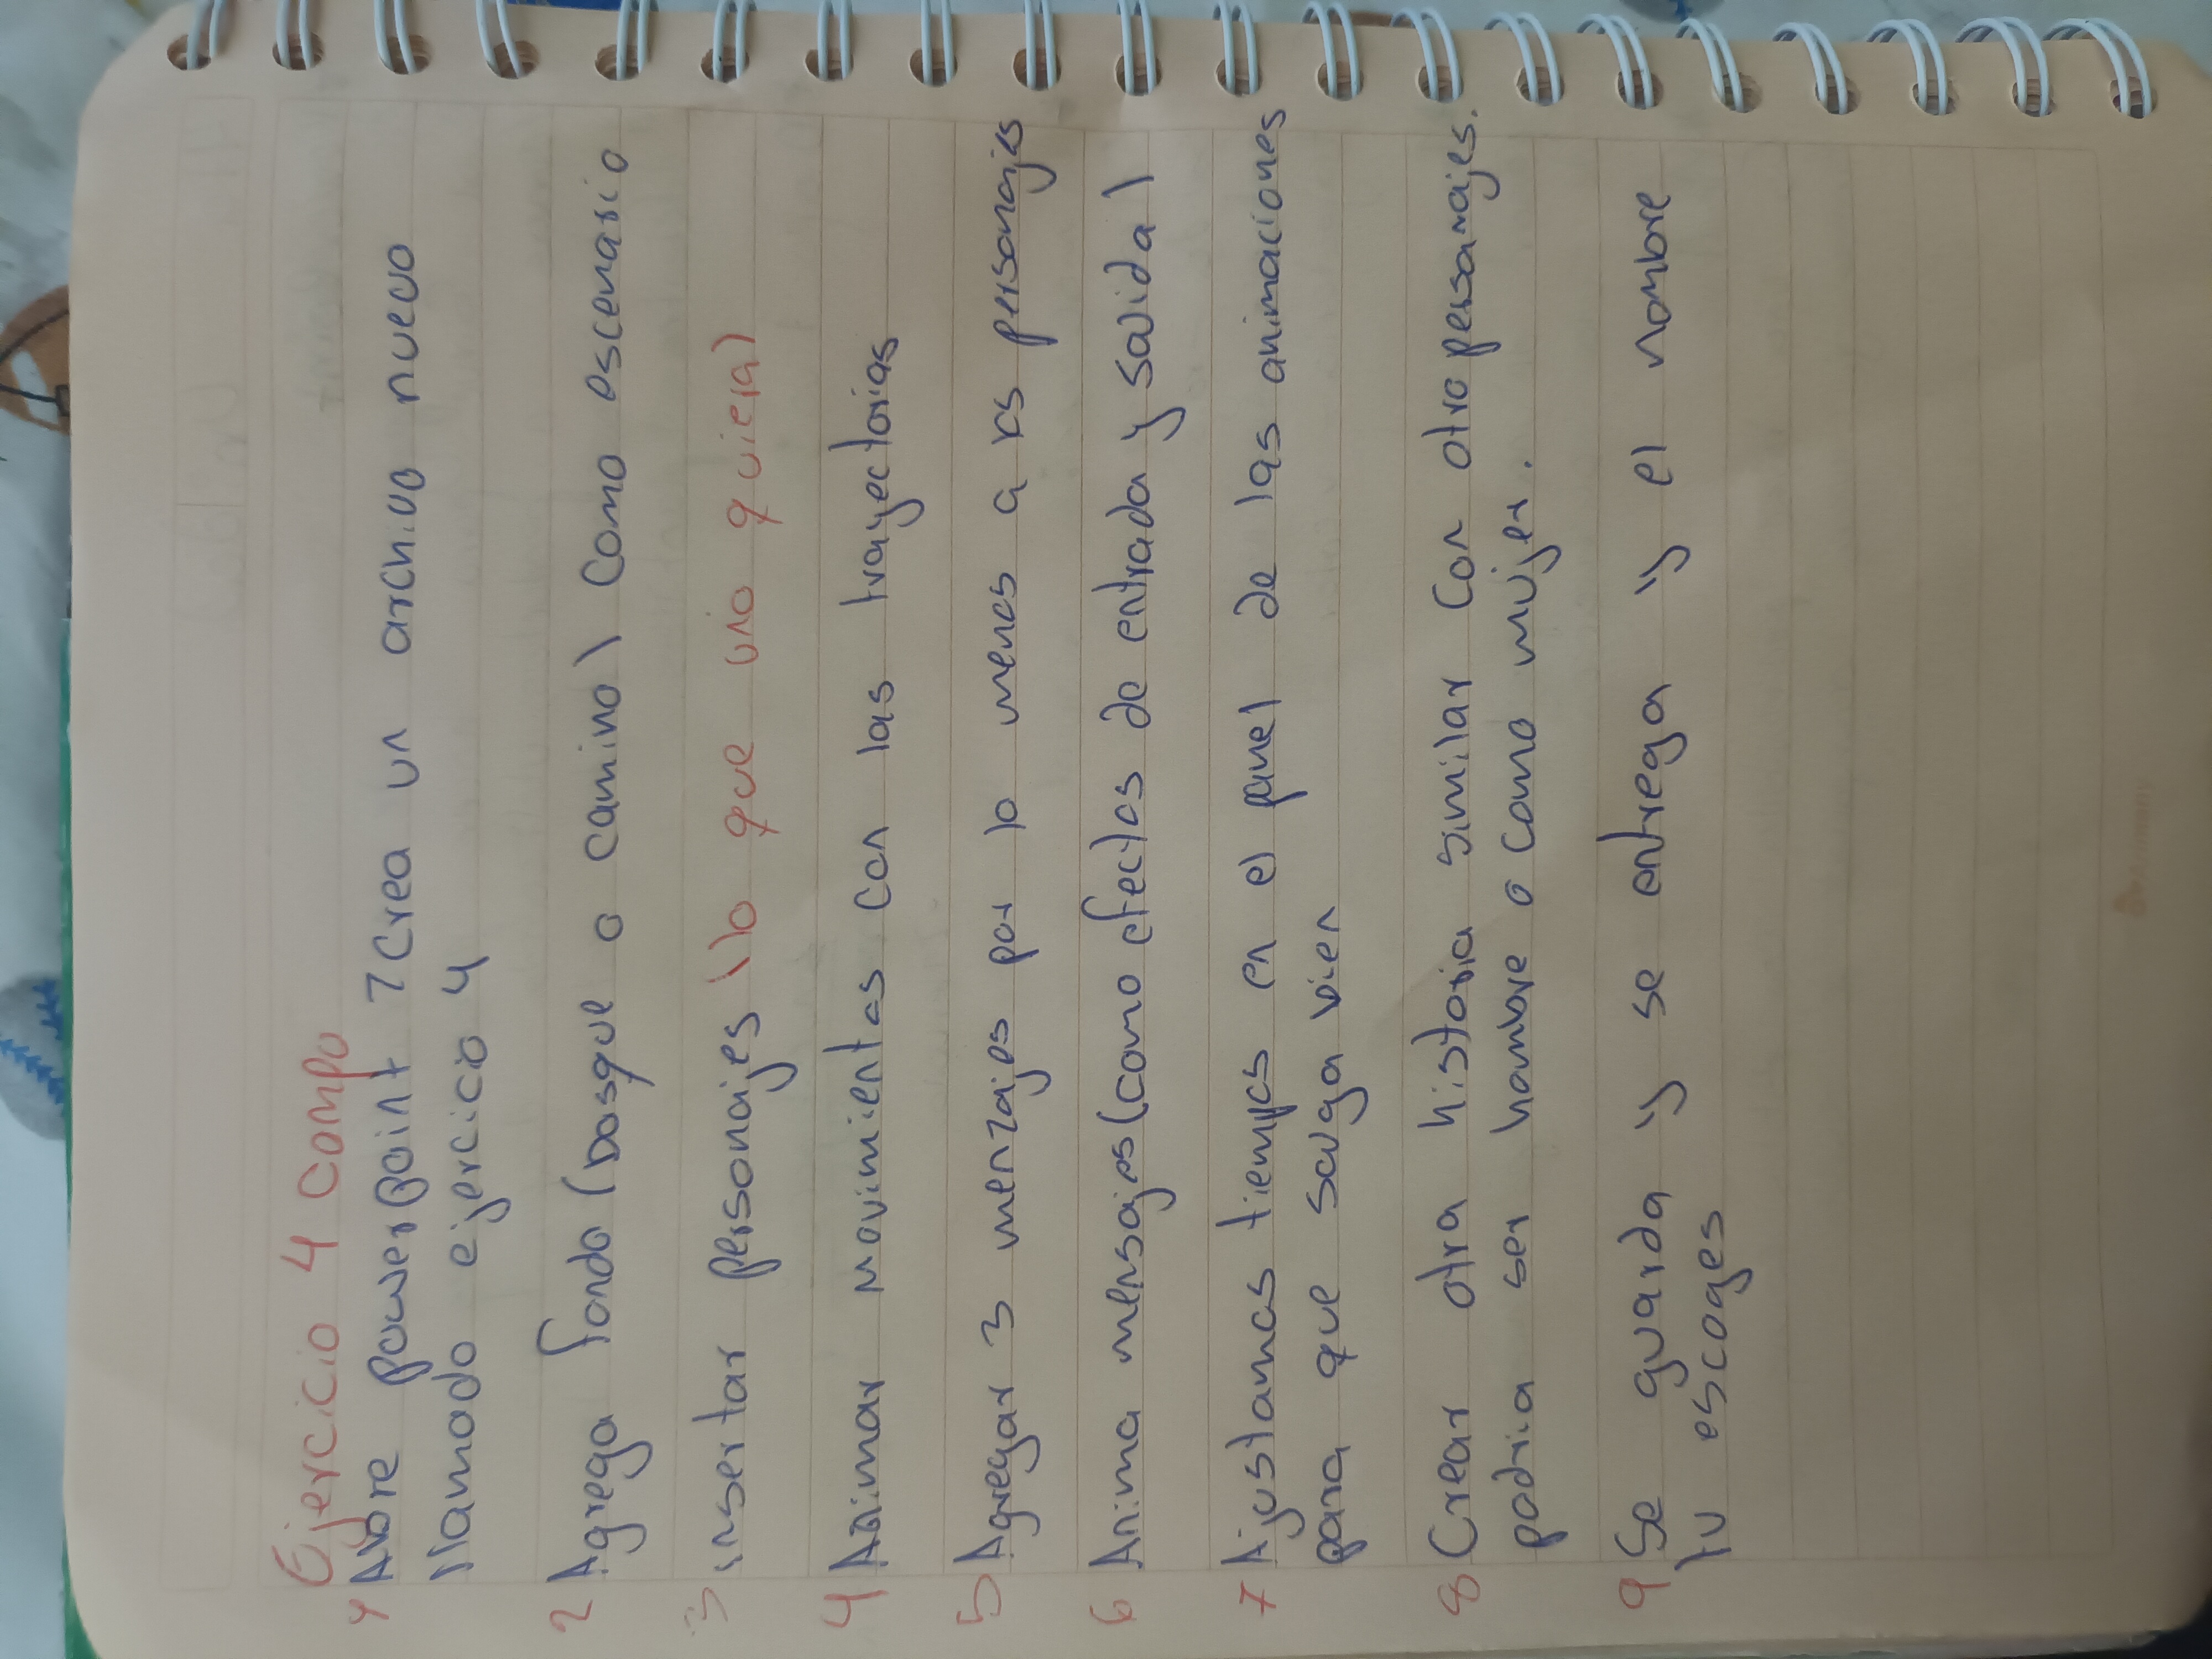 Ejercicio 4 compu
1 Abre powerpoint 7 Crea un archivo nuevo
llamado ejercicio 4
2 Agrega fondo (bosque o camino) como escenario
3 insertar personajes (lo que uno quiera)
4 Animar movimientos con las trayectorias
5 Agregar 3 menzajes por lo menos a los personajes
6 Anima mensajes (como efectos de entrada y salida)
7 Ajustamos tiempos en el panel de las animaciones
para que salga bien
8 Crear otra historia similar con otro personajes.
podria ser hombre o como mujer.
9 Se guarda y se entrega y el nombre
tu escoges